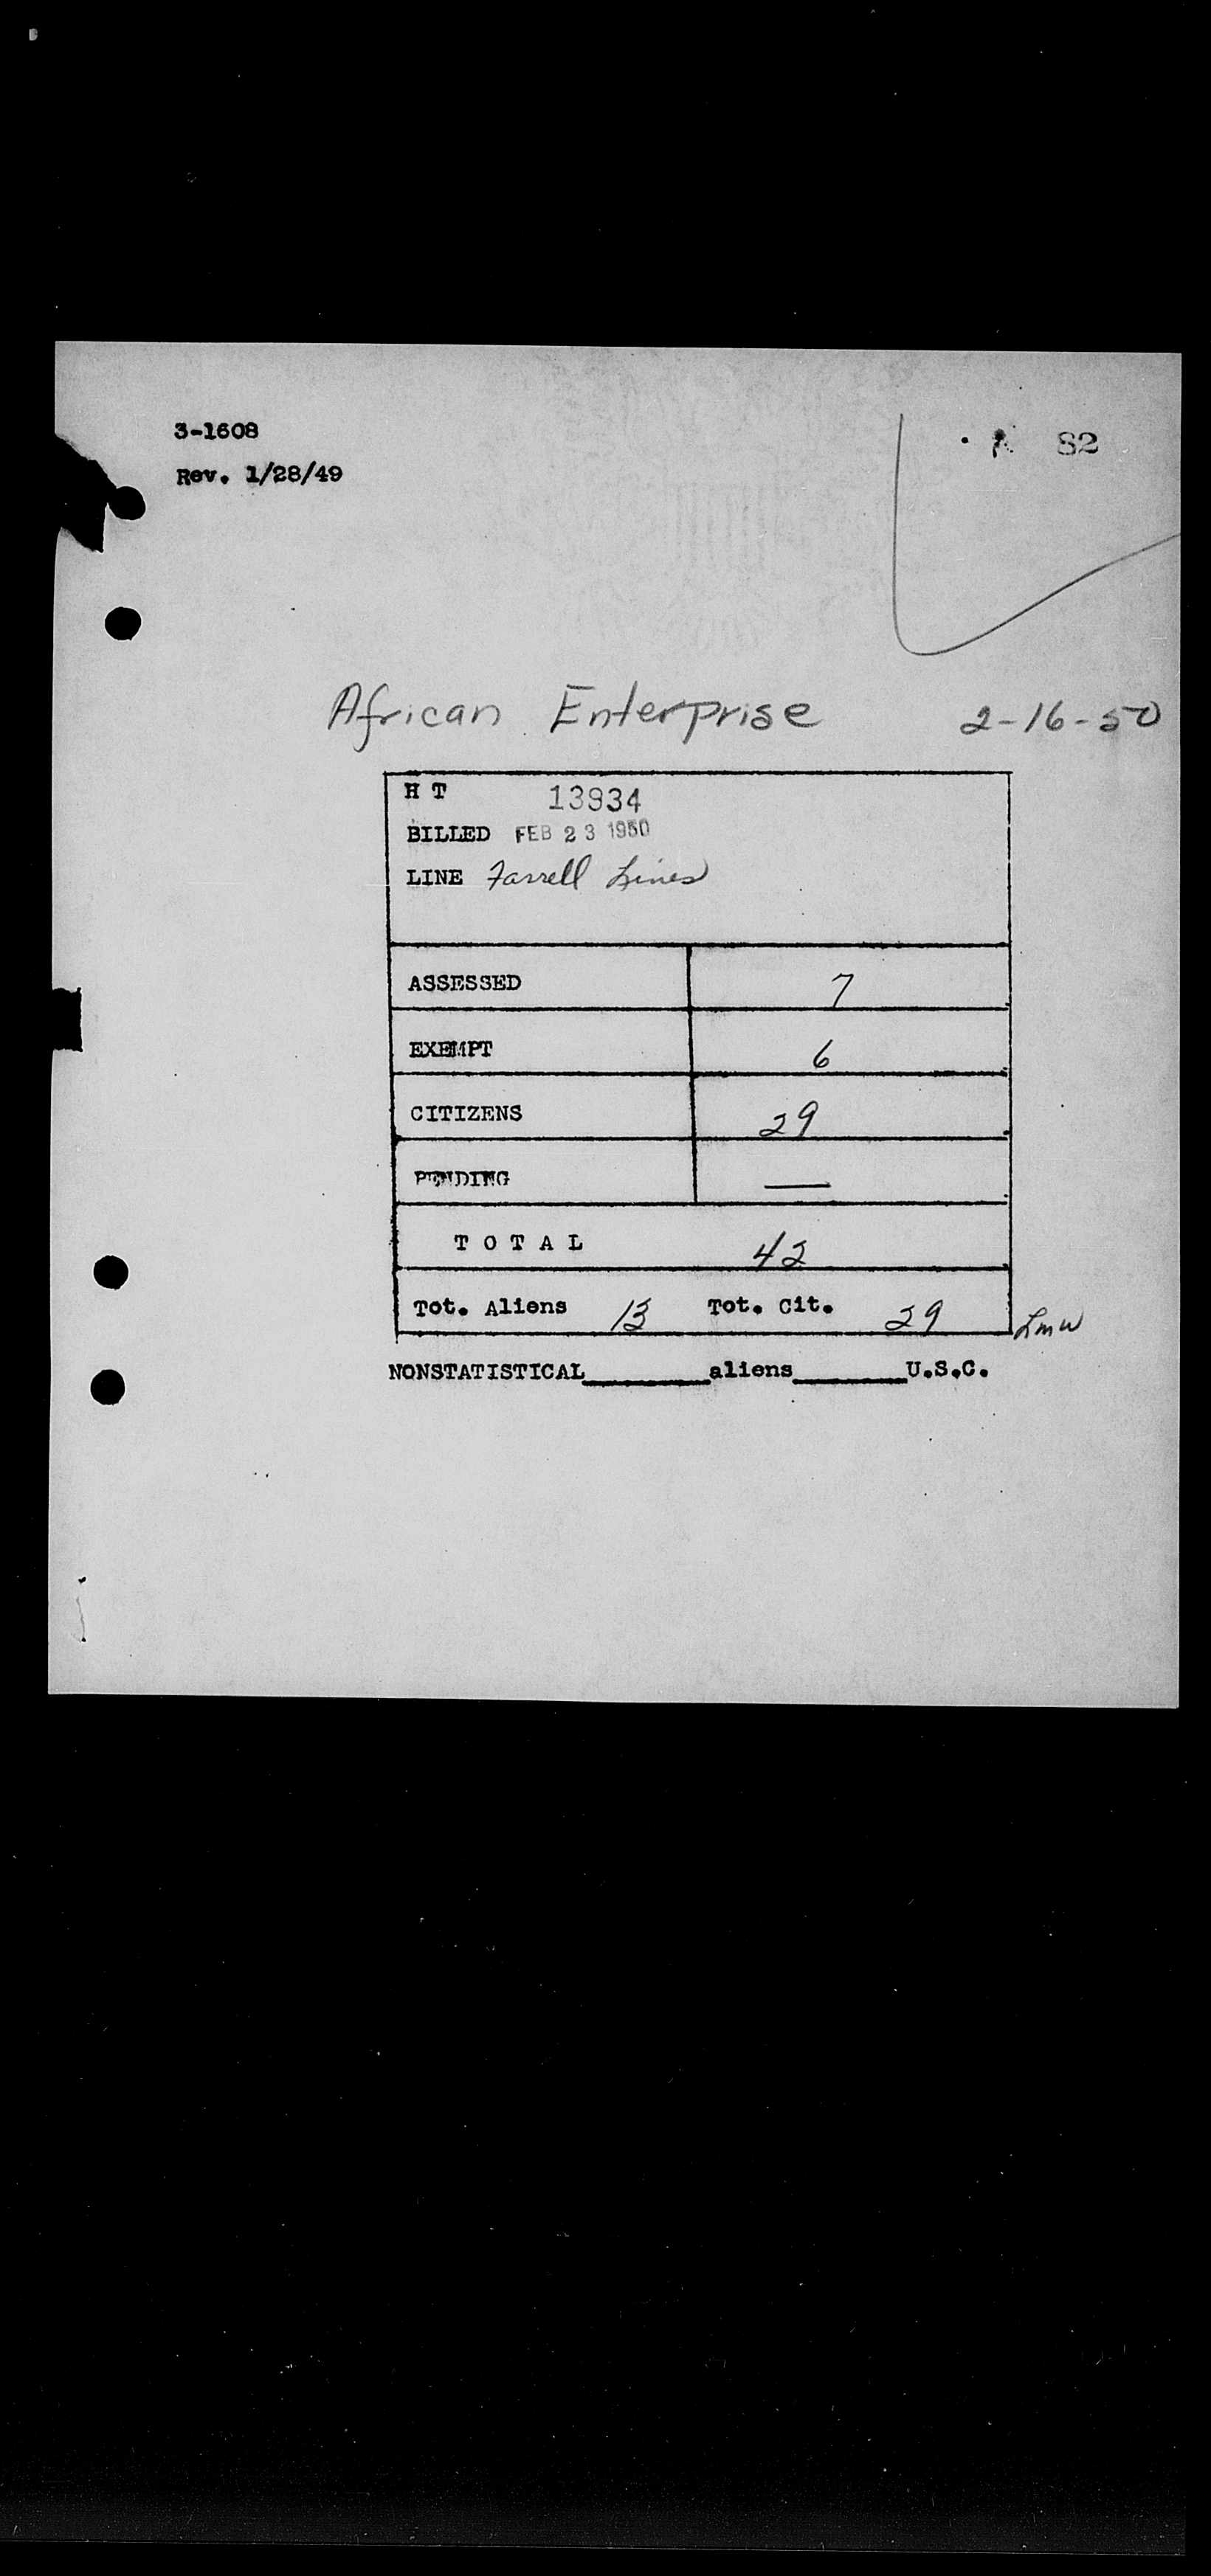 3-1608
82
Rev. 1/28/49
African Enterprise 2-16-50
H T 13934
BILLED FEB 23 1950
LINE Farrell Lines
ASSESSED 7
EXEMPT 6
CITIZENS 29
PENDING —
TOTAL 42
Tot. Aliens 13 Tot. Cit. 29 Lmw
NONSTATISTICAL________aliens_______U.S.C.